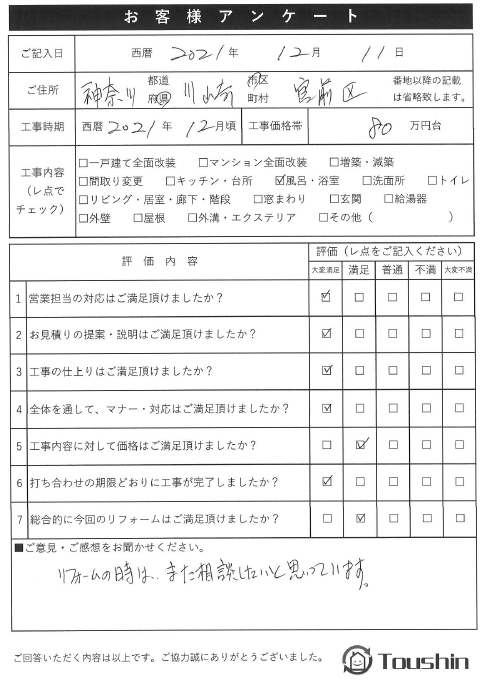 お客様アンケート
ご記入日 西暦 2021 年 12 月 11 日
ご住所 神奈川 都道府県 川崎 市区町村 宮前区 番地以降の記載は省略致します。
工事時期 西暦 2021 年 12 月頃 工事価格帯 80 万円台
工事内容（レ点でチェック）
□一戸建て全面改装 □マンション全面改装 □増築・減築
□間取り変更 □キッチン・台所 ☑風呂・浴室 □洗面所 □トイレ
□リビング・居室・廊下・階段 □窓まわり □玄関 □給湯器
□外壁 □屋根 □外溝・エクステリア □その他（ ）
評価内容 評価（レ点をご記入ください）
大変満足 満足 普通 不満 大変不満
1 営業担当の対応はご満足頂けましたか？ ☑ □ □ □ □
2 お見積りの提案・説明はご満足頂けましたか？ ☑ □ □ □ □
3 工事の仕上りはご満足頂けましたか？ ☑ □ □ □ □
4 全体を通して、マナー・対応はご満足頂けましたか？ ☑ □ □ □ □
5 工事内容に対して価格はご満足頂けましたか？ □ ☑ □ □ □
6 打ち合わせの期限どおりに工事が完了しましたか？ ☑ □ □ □ □
7 総合的に今回のリフォームはご満足頂けましたか？ □ ☑ □ □ □
■ご意見・ご感想をお聞かせください。
リフォームの時は、また相談したいと思っています。
ご回答いただく内容は以上です。ご協力誠にありがとうございました。
Toushin